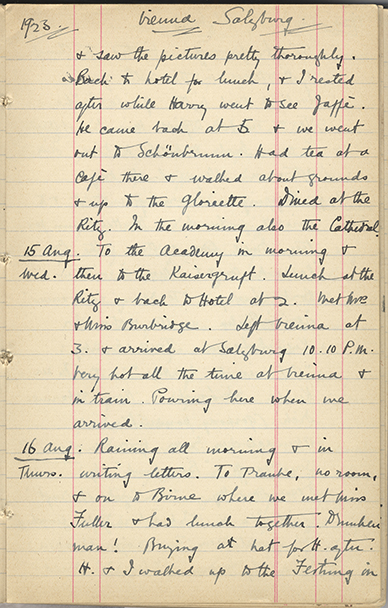 1923. Vienna Salzburg.
& saw the pictures pretty thoroughly.
Back to hotel for lunch, & I rested
after while Harry went to see Jaffé.
He came back at 5 & we went
out to Schönbrunn. Had tea at a
Café there & walked about grounds
& up to the Gloriette. Dined at the
Ritz. In the morning also the Cathedral.
15 Aug. To the Academy in morning &
Wed. then to the Kaisergruft. Lunch at the
Ritz & back to Hotel at 2. Met
& Miss Burbridge. Left Vienna at
3. & arrived at Salzburg 10.10 P.M.
Very hot all the time at Vienna &
in train. Pouring here when we
arrived.
16 Aug. Raining all morning & in
Thurs. writing letters. To Traube, no room,
& on to where we met Miss
Fuller & had lunch together. Drunken
man! Buying at hat for H. after.
H. & I walked up to the Festung in